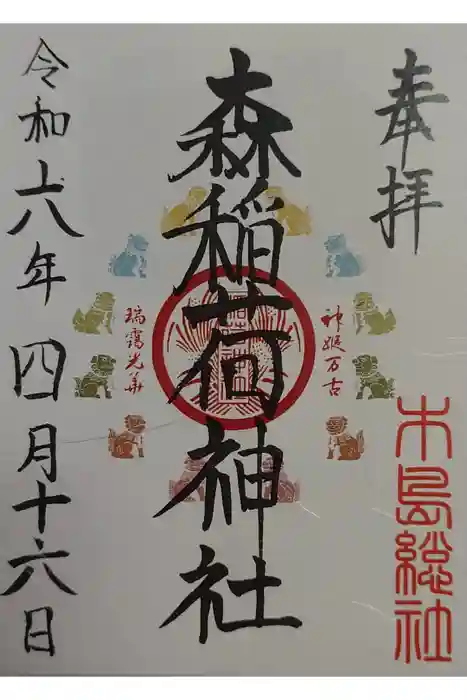 奉拝
木島総社
神姫万古
森稲荷神社
瑞靄光華
令和六年四月十六日